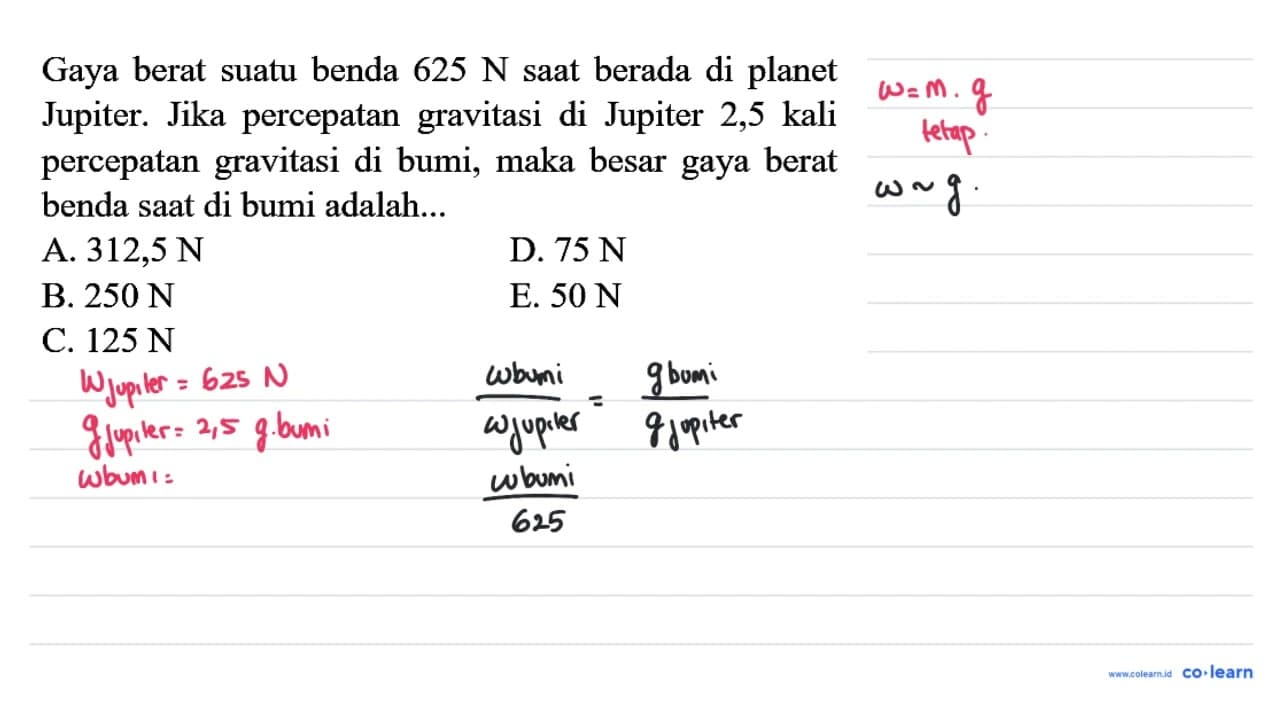 Gaya berat suatu benda 625 N saat berada di planet
Jupiter. Jika percepatan gravitasi di Jupiter 2,5 kali
percepatan gravitasi di bumi, maka besar gaya berat
benda saat di bumi adalah...
A. 312,5 N
B. 250 N
C. 125 N
D. 75 N
E. 50 N
w = m . g
tetap .
w ~ g .
W Jupiter = 625 N
g Jupiter = 2,5 g.bumi
wbumi =
wbumi / wjupiter = g bumi / g jupiter
wbumi / 625
www.colearn.id co·learn